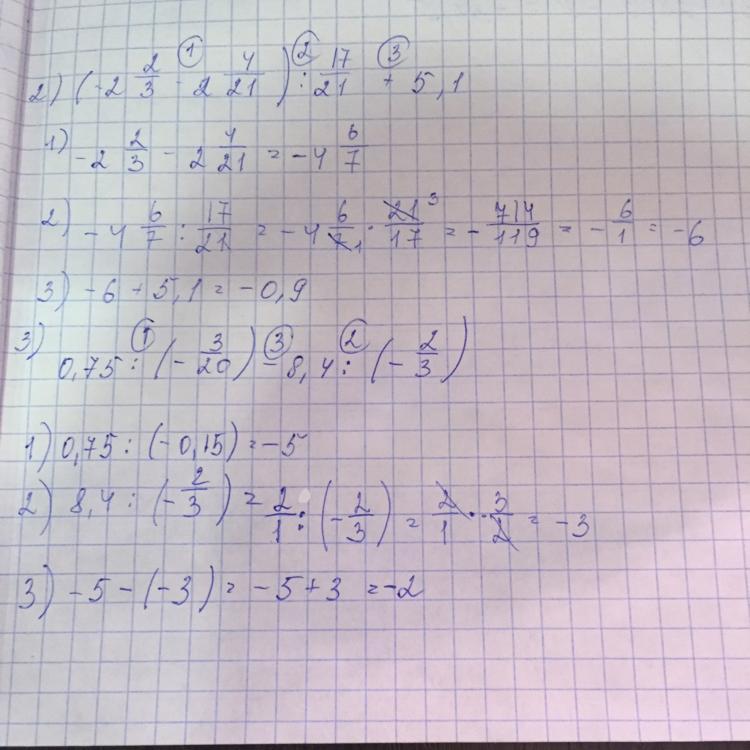 ① ② ③
2) (-2 2/3 - 2 4/21) : 17/21 + 5,1
1) -2 2/3 - 2 4/21 = -4 6/7
2) -4 6/7 : 17/21 = -4 6/7 1 · 21/17 3 = -714/119 = -6/1 = -6
3) -6 + 5,1 = -0,9
① ③ ②
3) 0,75 : (-3/20) - 8,4 : (-2/3)
1) 0,75 : (-0,15) = -5
2) 8,4 : (-2/3) = 2/1 : (-2/3) = 2/1 · -3/2 = -3
3) -5 - (-3) = -5 + 3 = -2